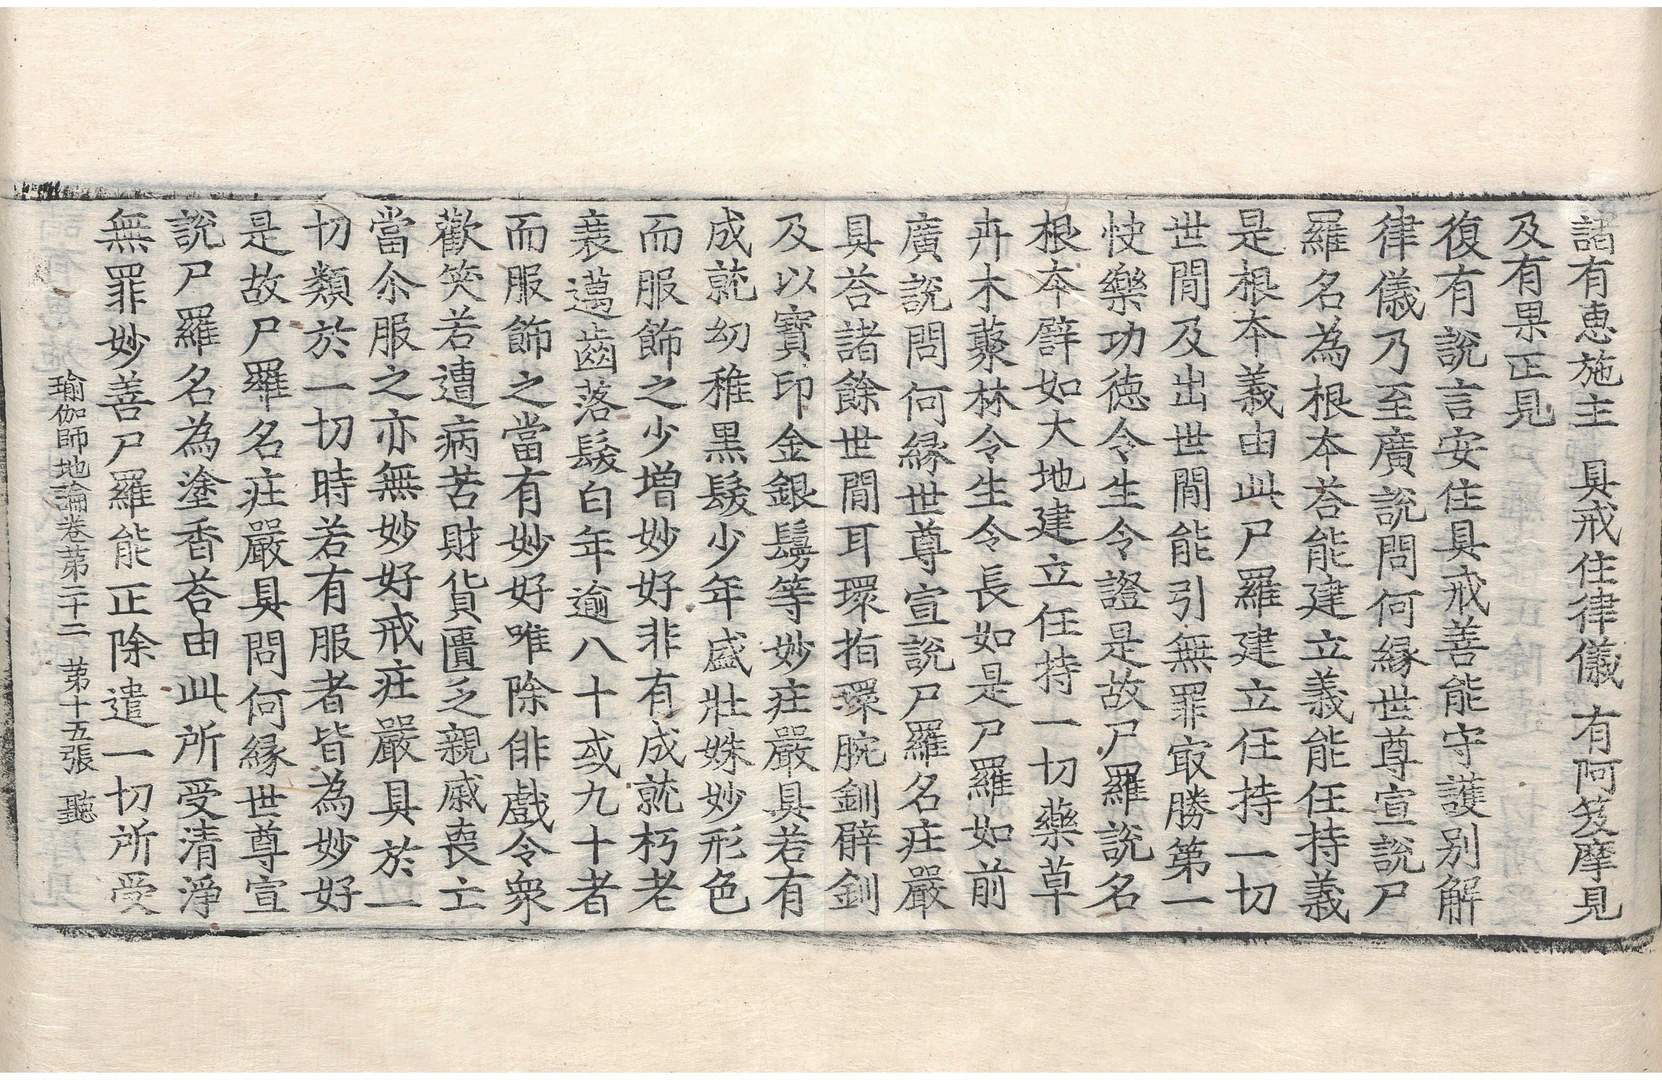 諸有惠施主　具戒住律儀　有阿笈摩見
及有果正見
復有說言安住具戒善能守護別解
律儀乃至廣說問何緣世尊宣說尸
羅名為根本荅能建立義能任持義
是根本義由此尸羅建立任持一切
世間及出世間能引無罪㝡勝第一
快樂功德令生令證是故尸羅說名
根本譬如大地建立任持一切藥草
卉木藂林令生令長如是尸羅如前
廣說問何緣世尊宣說尸羅名莊嚴
具荅諸餘世間耳環指環腕釧臂釧
及以寶印金銀鬘等妙莊嚴具若有
成就幼稚黑髮少年盛壯姝妙形色
而服飾之少增妙好非有成就朽老
衰邁齒落髮白年逾八十或九十者
而服飾之當有妙好唯除俳戲令衆
歡笑若遭病苦財貨匱乏親戚喪亡
當尒服之亦無妙好戒莊嚴具於一
切類於一切時若有服者皆為妙好
是故尸羅名莊嚴具問何緣世尊宣
說尸羅名為塗香荅由此所受清淨
無罪妙善尸羅能正除遣一切所受
瑜伽師地論卷第二十二　第十五張　聽